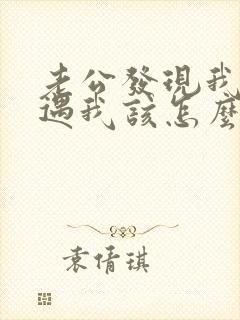 老公發現我
遇我該怎麼
袁倩琪